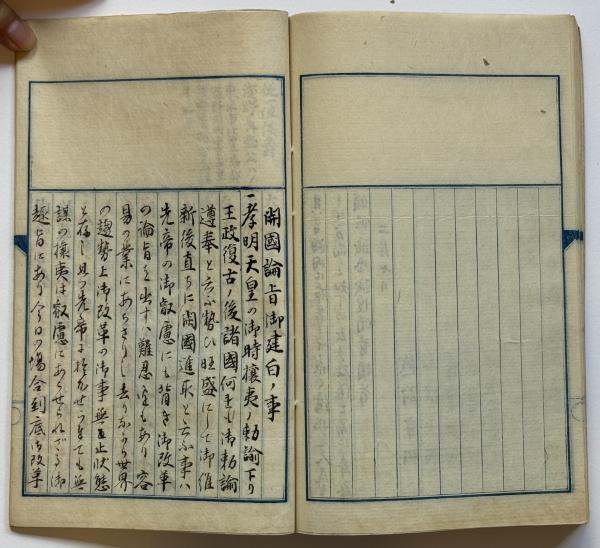 開國論旨御建白ノ事
一孝明天皇の御時攘夷ノ勅諭下り
王政復古ノ後諸國何れも御勅諭
遵奉と云ふ勢ひ旺盛にして御維
新後直ちに開國進取と云ふ事ハ
先帝の御叡慮にも背き御改革
の論旨を出すハ難思
もあり容
易の業にあらさりし去りなから世界
の趨勢上御改革の御事無止状態
と存し且つ先帝に於かせられても無
謀の攘夷は叡慮にあらせられざる御
趣旨にあり今日の場合到底御改革